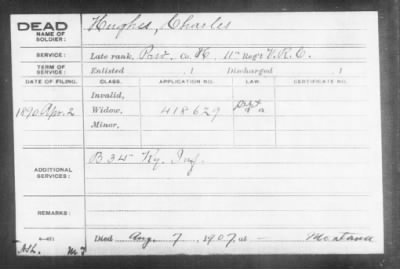 DEAD
NAME OF
SOLDIER:
Hughes, Charles
SERVICE:
Late rank, Parv, Co. K, 11" Reg't V.R.C.
TERM OF
SERVICE:
Enlisted , 1 Discharged 1
DATE OF FILING. CLASS. APPLICATION NO. LAW. CERTIFICATE NO.
Invalid,
1890 Apr. 2 Widow, 418629
Minor,
ADDITIONAL
SERVICES:
B 34 Ky. Inf.
REMARKS:
Died Aug. 7, 1907, at — Montana